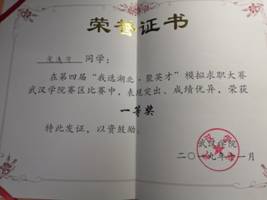 荣誉证书
同学：
在第四届“我选湖北·聚英才”模拟求职大赛
武汉学院赛区比赛中，表现突出、成绩优异，荣获
一等奖
特此发证，以资鼓励。
武汉学院
二〇一九年十一月